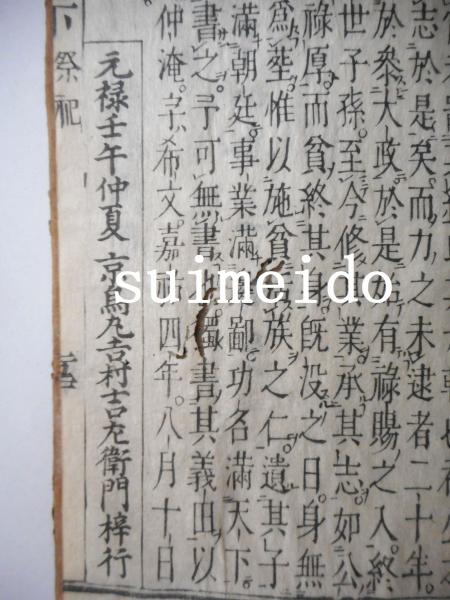 志於是矣。而力之未逮者二十年。
於參大政。於是有祿賜之入。終
世子孫。至今修其業。承其志。如公
祿厚。而貧終其身。既沒之日。身無
爲塟。惟以施貧活族之仁。遺其子
滿朝廷。事業滿邊鄙。功名滿天下
書之。予可無書也。獨書其義田以
仲淹。字希文。嘉祐四年。八月十日
元禄壬午仲夏 京烏丸 吉村吉左衛門 梓行
下 祭祀
suimeido